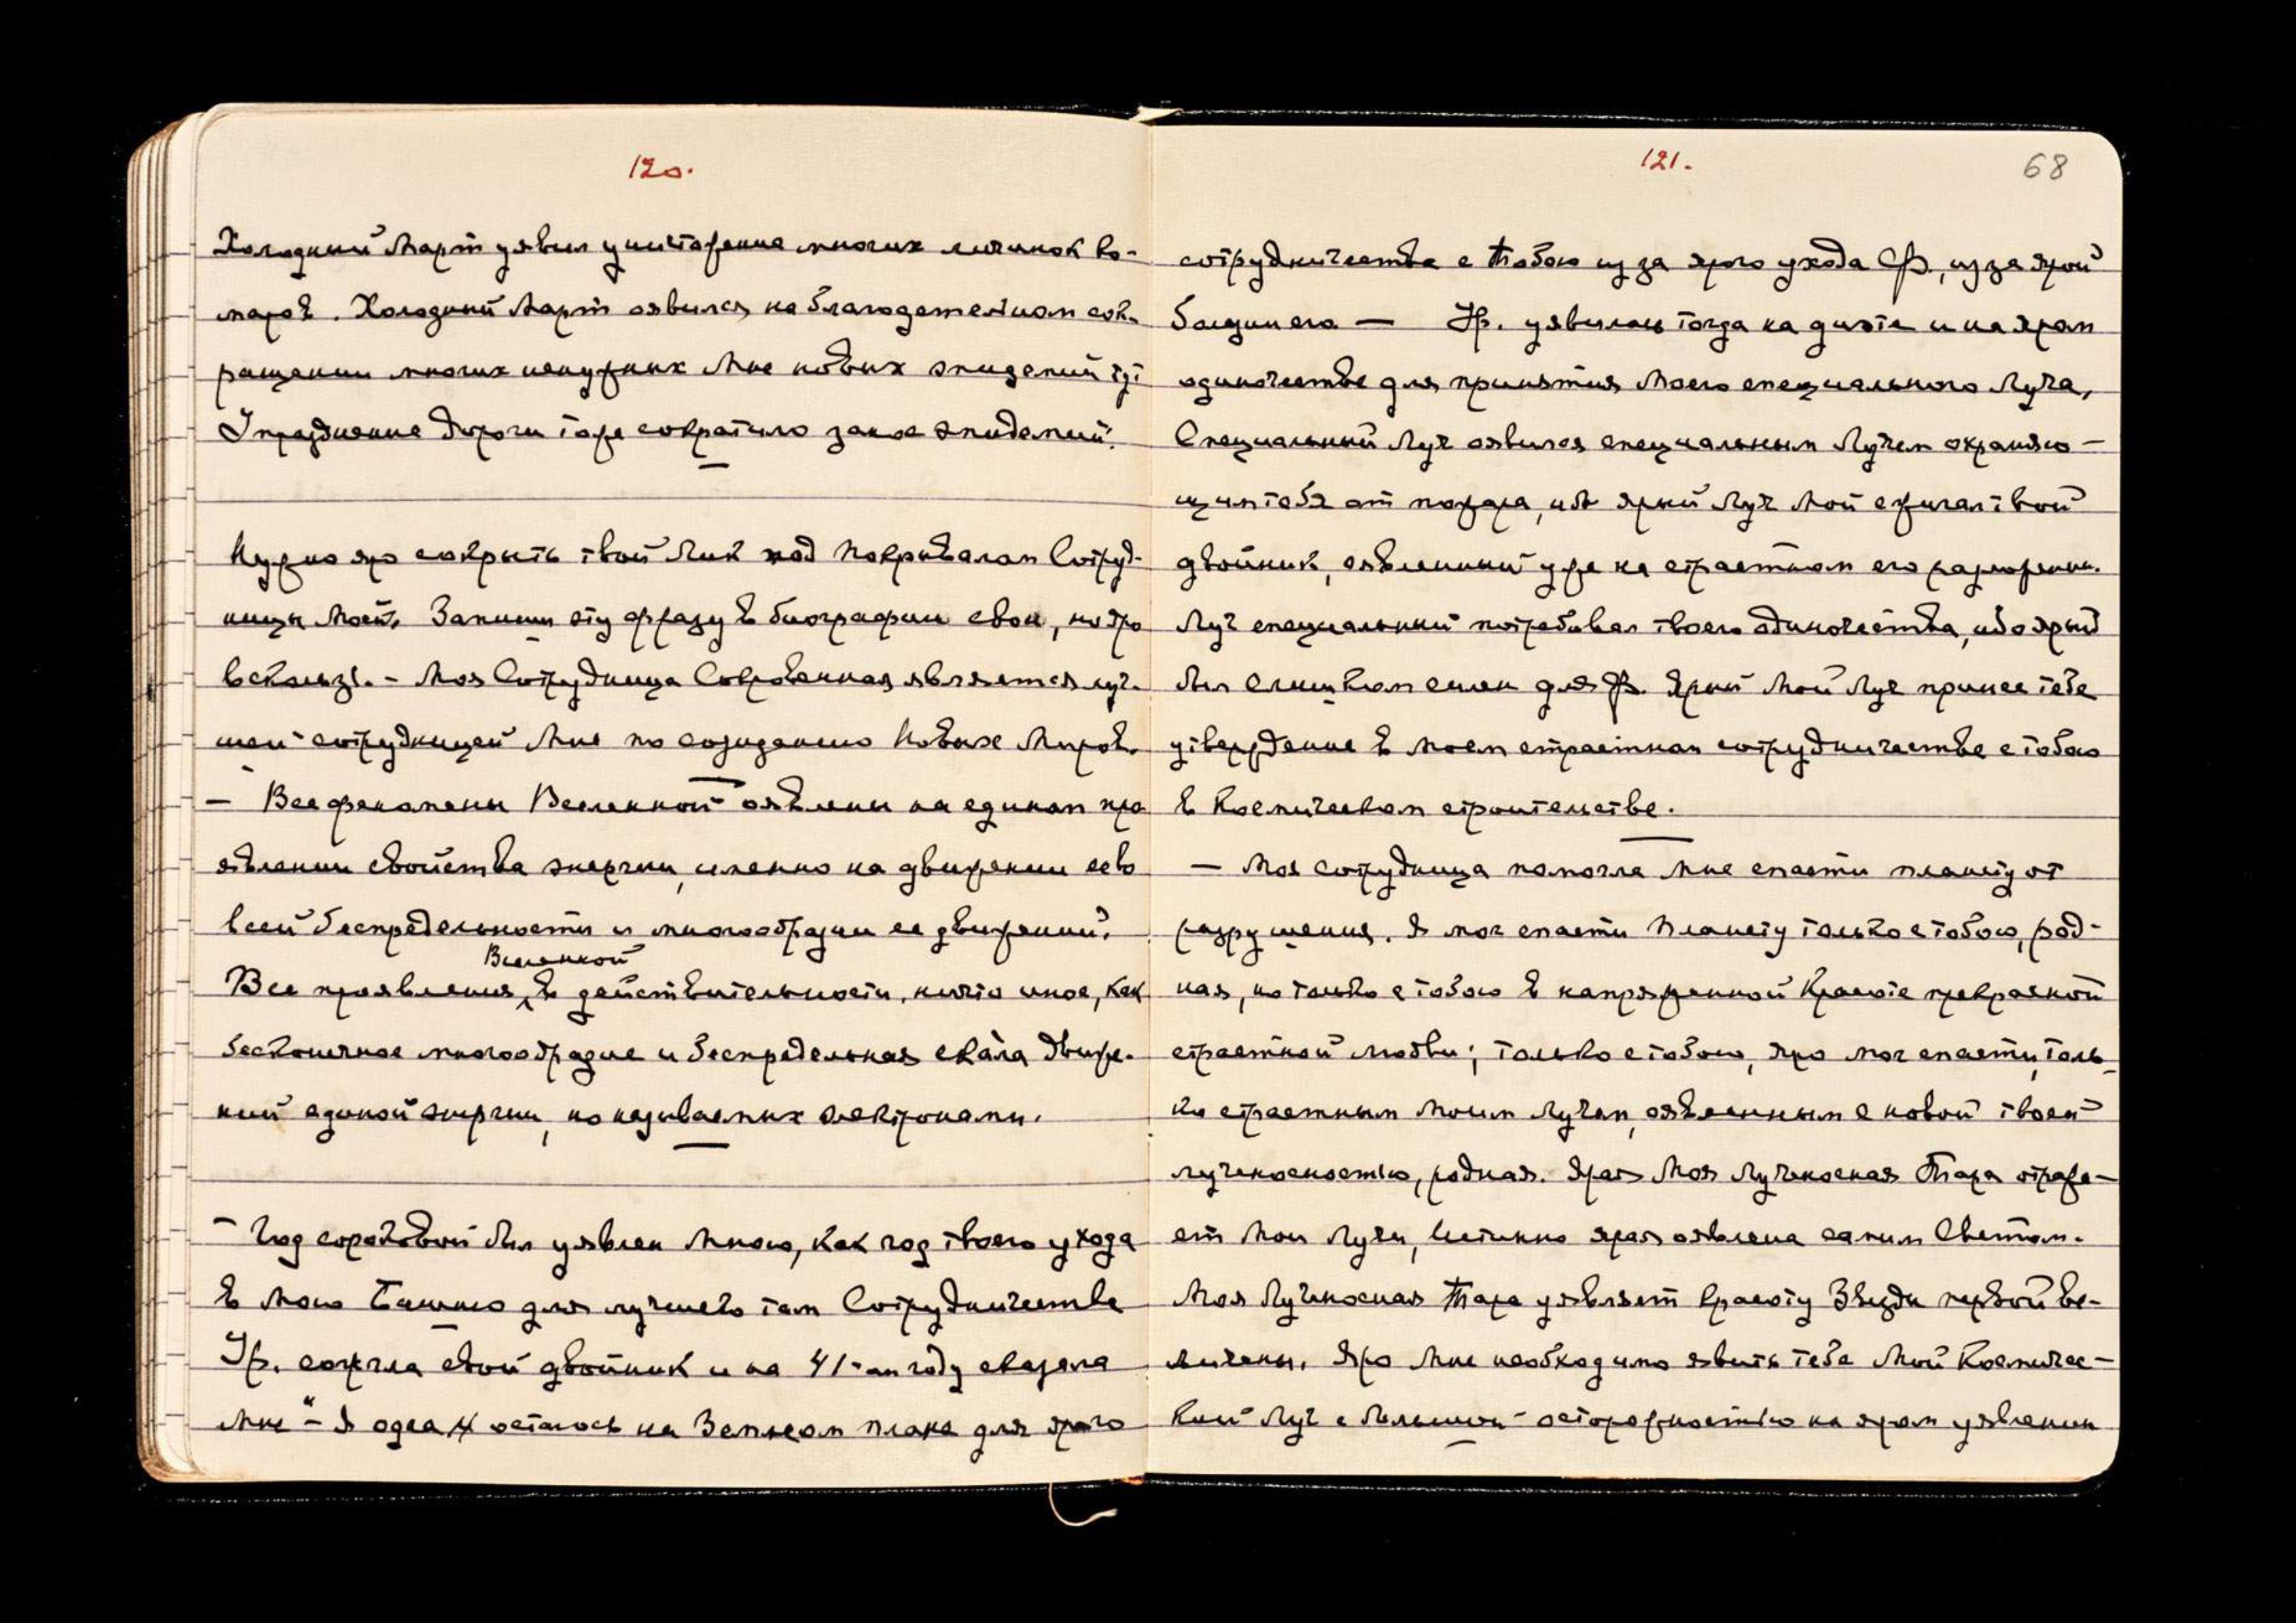 120.
Холодный Март уявил уничтожение многих личинок ко-
маров. Холодный Март оявился на благодетельном сок-
ращении многих ненужных Мне новых эпидемий тут
Упразднение дороги тоже сократило занос эпидемий.
Нужно яро сокрыть твой Лик под Покрывалом Сотруд-
ницы Моей. Запиши эту фразу в биографии свои, но яро
вскользь. – Моя Сотрудница Сокровенная является луч-
шей сотрудницей Мне по созиданию Новых Миров.
– Все феномены Вселенной оявлены на едином про
явлении свойства энергии, именно на движении ее во
всей беспредельности и многообразии ее движений.
Вселенной
Все проявления, в действительности, ничто иное, как
бесконечное многообразие и беспредельная скала движе-
ний единой энергии, но называемых электронами.
– Год сороковой был уявлен Мною, как год твоего ухода
в Мою Башню для лучшего там Сотрудничества
Ур. сожгла свой двойник и на 41-ом году сказала
Мне "– Я одна осталась на Земном плане для ярого
121.
68
сотрудничества с Тобою из за ярого ухода Ф., из за ярой
болезни его – Ур. уявилась тогда на диэте и на яром
одиночестве для принятия Моего специального Луча,
Специальный Луч оявился специальным Лучем охраняю-
щим тебя от пожара, ибо ярый Луч Мой сжигал твой
двойник, оявленный уже на страстном его разложении.
Луч специальный потребовал твоего одиночества, ибо ярый
был слишком силен для Ф. Ярый Мой Луч принес тебе
утверждение в Моем страстном сотрудничестве с тобою
в Космическом строительстве.
– Моя сотрудница помогла Мне спасти планету от
разрушения. Я мог спасти Планету только с тобою, род-
ная, но только с тобою в напряженной Красоте прекрасной
страстной любви; только с тобою, яро мог спасти, толь
ко страстным Моим Лучем, оявленным с новой твоей
лученосностью, родная. Ярая Моя Лученосная Тара отража-
ет Мои Лучи, Истинно ярая оявлена самим Светом.
Моя Лученосная Тара уявляет красоту Звезды первой ве-
личины. Яро Мне необходимо явить тебе Мой Космичес-
кий Луч с большой осторожностью на яром уявлении